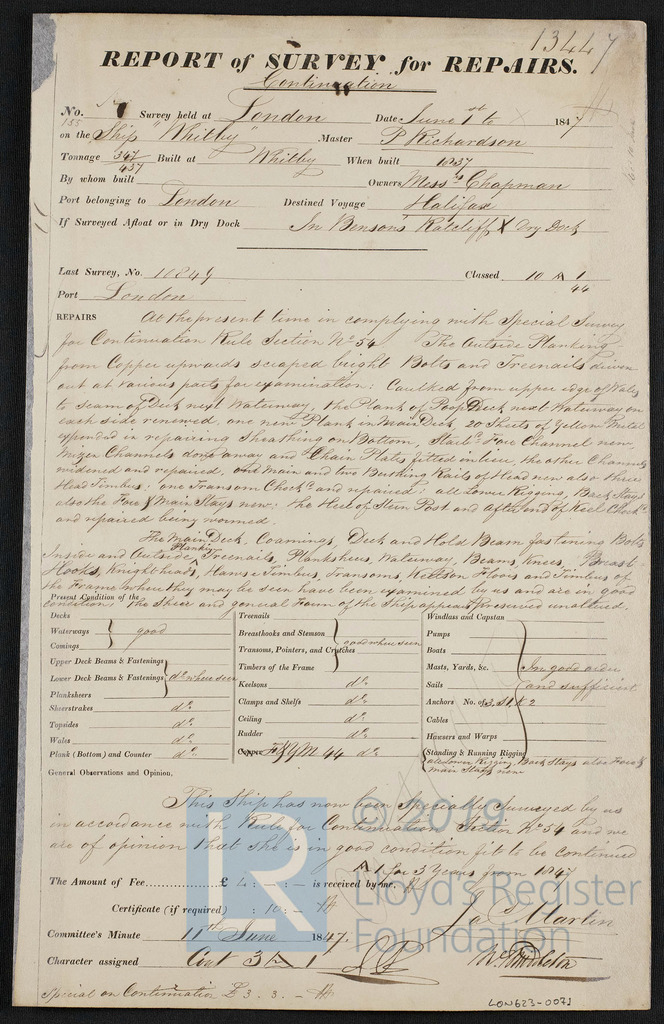 13447
REPORT of SURVEY for REPAIRS.
Continuation
No. 155 Survey held at London Date June 1st to 1847
on the Ship "Whitby" Master P Richardson
Tonnage 347/437 Built at Whitby When built 1837
By whom built Owners Messrs Chapman
Port belonging to London Destined Voyage Halifax
If Surveyed Afloat or in Dry Dock In Benson's Ratcliff X Dry Dock
Last Survey, No. 11849 Classed 10 A 1
44
Port London
REPAIRS At the present time in complying with Special Survey
for Continuation Rule Section No 54 The Outside Planking
from Copper upwards scraped bright Bolts and Treenails driven
out at various parts for examination: Caulked from upper edge of Wales
to seam of Deck next Waterway, the Plank of Poop Deck next Waterway on
each side renewed, one new Plank in Main Deck, 20 Sheets of Yellow Metal
expended in repairing Sheathing on Bottom, Starbd Fore Channel new,
Mizen Channels done away and Chain Plates fitted in lieu, the other Channels
widened and repaired, and Main and two Berthing Rails of Head new also three
Head Timbers: one Transom Chock'd and repaired: all Lower Rigging, Back Stays
also the Fore & Main Stays new: the Heel of Stern Post and after end of Keel Chock'd
and repaired being wormed.
The Main Deck, Coamings, Deck and Hold Beam fastenings Bolts
Inside and Outside Planking Treenails, Planksheers, Waterway, Beams, Knees, Breast
Hooks, Knightheads, Hawse Timbers, Transoms, Keelson Floors and Timbers of
the Frame where they may be seen have been examined by us and are in good
Present Condition of the
condition: the Sheer and general Form of the Ship appears preserved unaltered.
Decks
Waterways } good
Comings
Upper Deck Beams & Fastenings
Lower Deck Beams & Fastenings } do where seen
Planksheers
Sheerstrakes do
Topsides do
Wales do
Plank (Bottom) and Counter do
Treenails
Breasthooks and Stemson } good where seen
Transoms, Pointers, and Crutches
Timbers of the Frame
Keelsons do
Clamps and Shelfs do
Ceiling do
Rudder do
Copper Y M 44 do
Windlass and Capstan
Pumps
Boats
Masts, Yards, &c. } In good order
Sails and sufficient
Anchors No. of 3, S1, K2
Cables
Hawsers and Warps
Standing & Running Rigging
all Lower Rigging, Back Stays also Fore &
main Stays new
General Observations and Opinion,
This Ship has now been Specially Surveyed by us
in accordance with Rule for Continuation Section No 54 and we
are of opinion that she is in good condition fit to be continued
A 1 for 3 Years from 1847
The Amount of Fee £ 4 : - : - is received by me.
Certificate (if required) : 10 : -
Jas Martin
Committee's Minute 11th June 1847.
Character assigned Cont 3 A 1
Special on Continuation £ 3 . 3 . -
LON623-0071
© 2019
LR
Lloyd's Register
Foundation